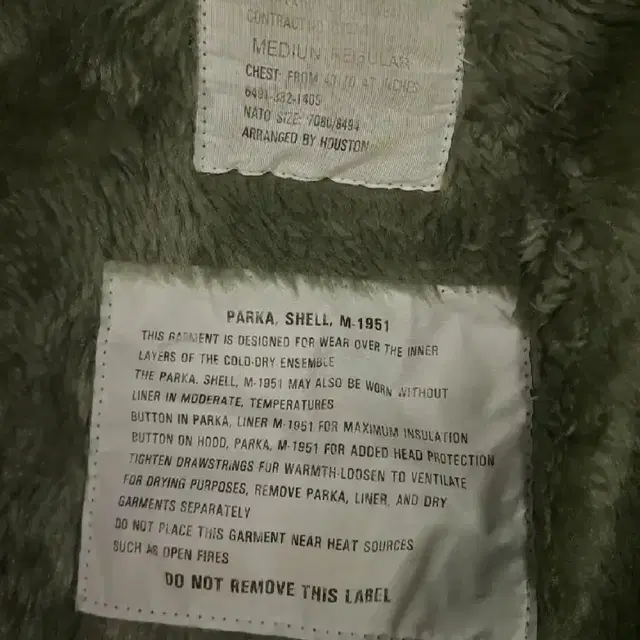 CONTRACT NO.
MEDIUN REGULAR
CHEST: FROM INCHES
NATO SIZE: 7080/8494
ARRANGED BY HOUSTON
PARKA, SHELL, M-1951
THIS GARMENT IS DESIGNED FOR WEAR OVER THE INNER
LAYERS OF THE COLD-DRY ENSEMBLE
THE PARKA, SHELL, M-1951 MAY ALSO BE WORN WITHOUT
LINER IN MODERATE, TEMPERATURES
BUTTON IN PARKA, LINER M-1951 FOR MAXIMUM INSULATION
BUTTON ON HOOD, PARKA, M-1951 FOR ADDED HEAD PROTECTION
TIGHTEN DRAWSTRINGS FUR WARMTH-LOOSEN TO VENTILATE
FOR DRYING PURPOSES, REMOVE PARKA, LINER, AND DRY
GARMENTS SEPARATELY
DO NOT PLACE THIS GARMENT NEAR HEAT SOURCES
SUCH AS OPEN FIRES
DO NOT REMOVE THIS LABEL